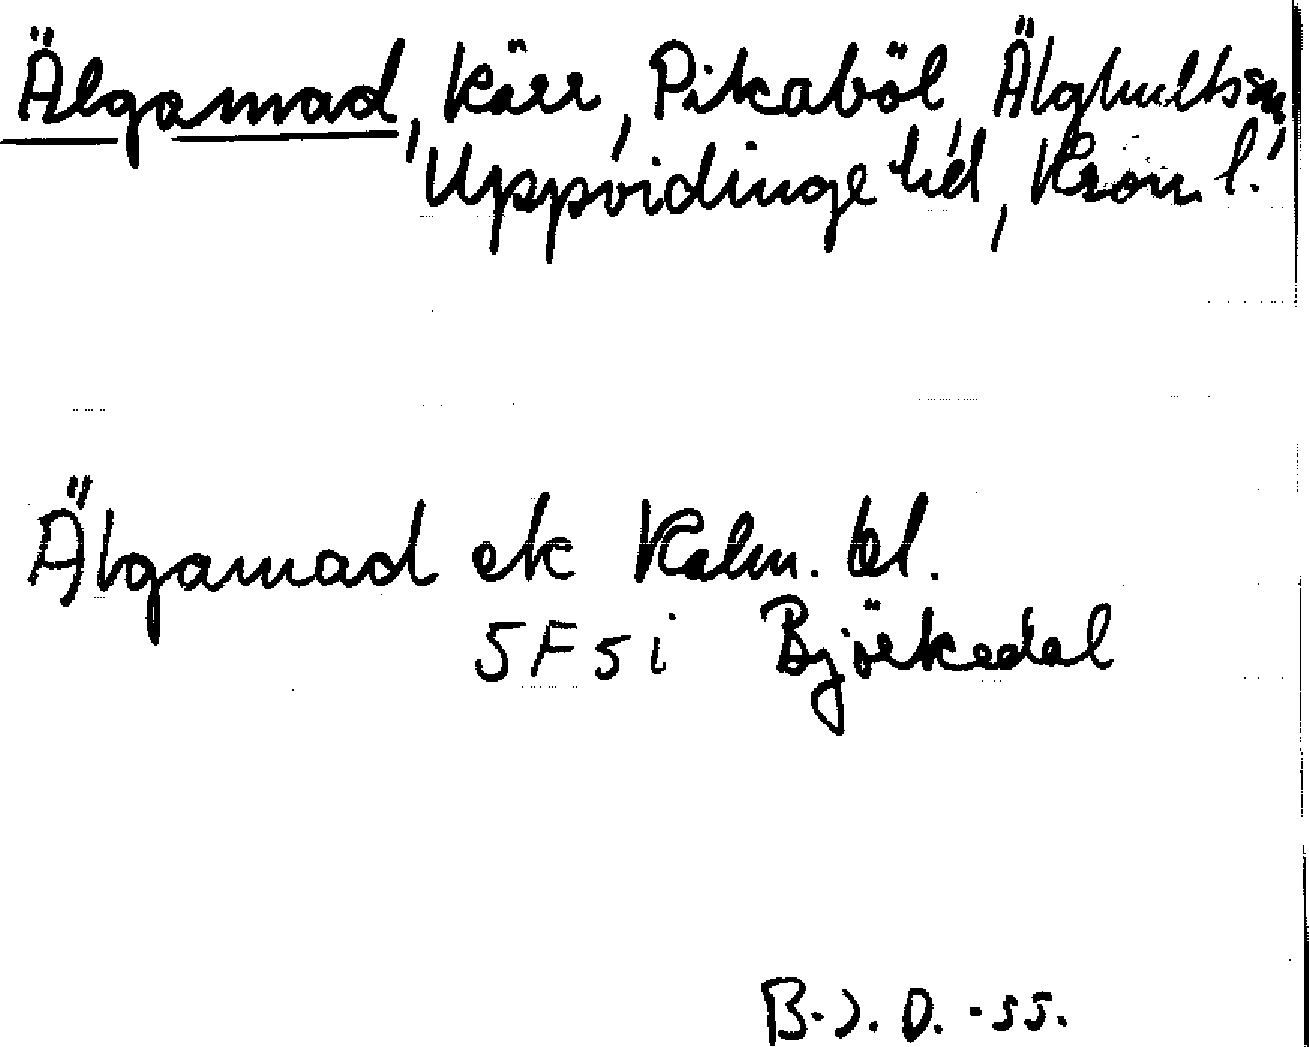 Älgamad, kärr, Pikaböl, Älghultssn,
Uppvidinge hd, Kron. l.
Älgamad ek Kalm. bl.
5F5i Björkedal
B.J.O. -55.